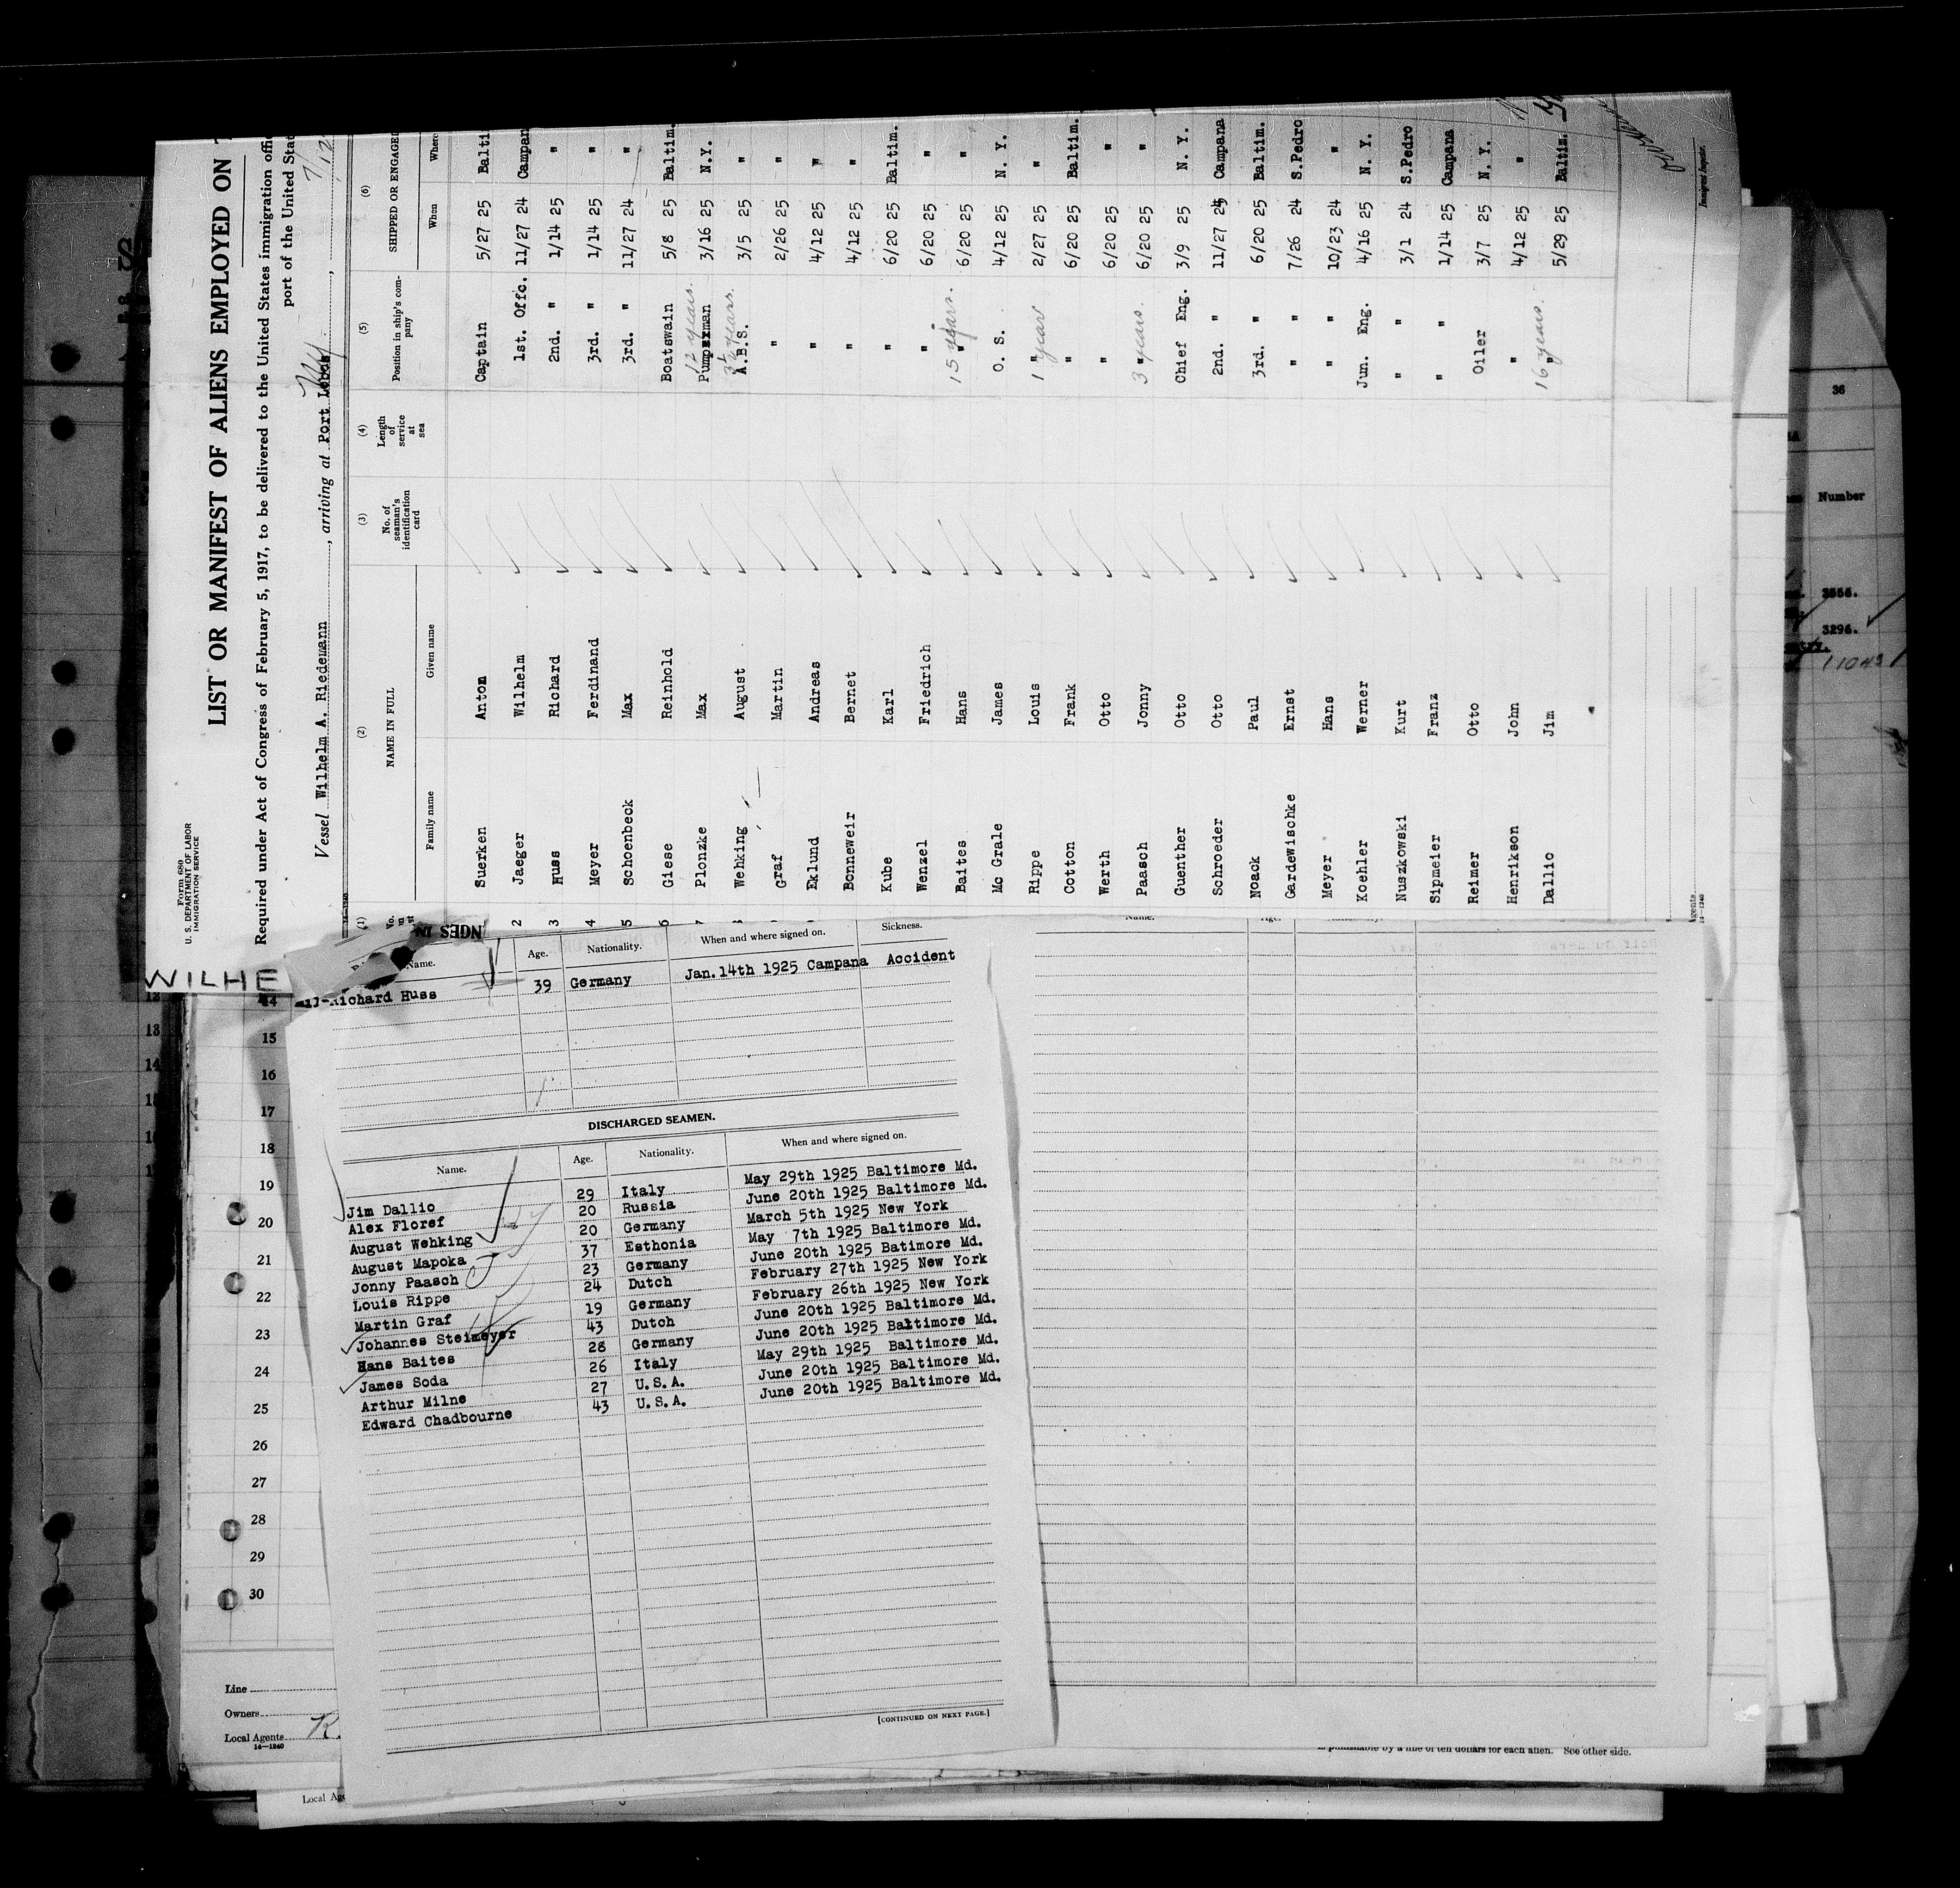 Form 680
U. S. DEPARTMENT OF LABOR
IMMIGRATION SERVICE
LIST OR MANIFEST OF ALIENS EMPLOYED ON
Required under Act of Congress of February 5, 1917, to be delivered to the United States immigration
port of the United
Vessel Wilhelm A. Riedemann, arriving at Port
(1) (2) (3) (4) (5) (6)
NAME IN FULL No. of seaman's identification card Length of service at sea Position in ship's company SHIPPED OR ENGAGED
Family name Given name When Where
Suerken Anton Captain 5/27 25 Balti
2 Jaeger Wilhelm 1st. Offc. 11/27 24 Campan
3 Huss Richard 2nd. " 1/14 25 "
4 Meyer Ferdinand 3rd. " 1/14 25 "
5 Schoenbeck Max 3rd. " 11/27 24 "
6 Giese Reinhold Boatswain 5/8 25 Baltim.
7 Plonzke Max 12 years. Pumpman 3/16 25 N.Y.
Wehking August 3½ years. A.B.S. 3/5 25 "
Graf Martin " 2/26 25 "
Eklund Andreas " 4/12 25 "
Bonneweir Bernet " 4/12 25 "
Kube Karl " 6/20 25 Baltim.
Wenzel Friedrich " 6/20 25 "
Baites Hans 15 years. " 6/20 25 "
Mc Grale James O. S. 4/12 25 N. Y.
Rippe Louis 1 year " 2/27 25 "
Cotton Frank " 6/20 25 Baltim.
Werth Otto " 6/20 25 "
Paasch Jonny 3 years. " 6/20 25 "
Guenther Otto Chief Eng. 3/9 25 N. Y.
Schroeder Otto 2nd. " 11/27 24 Campana
Noack Paul 3rd. " 6/20 25 Baltim.
Gardewischke Ernst " " 7/26 24 S.Pedro
Meyer Hans " " 10/23 24 "
Koehler Werner Jun. Eng. 4/16 25 N. Y.
Nuszkowski Kurt " " 3/1 24 S.Pedro
Sipmeier Franz " " 1/14 25 Campana
Reimer Otto Oiler 3/7 25 N. Y.
Henrikson John " 4/12 25 "
Dallio Jim 16 years. " 5/29 25 Baltim.
Immigrant Inspector.
36
Number
3296.
11043
WILHE
NGES IN
Name. Age. Nationality. When and where signed on. Sickness.
Richard Huss 39 Germany Jan.14th 1925 Campana Accident
DISCHARGED SEAMEN.
Name. Age. Nationality. When and where signed on.
Jim Dallio 29 Italy May 29th 1925 Baltimore Md.
Alex Floref 20 Russia June 20th 1925 Baltimore Md.
August Wehking 20 Germany March 5th 1925 New York
August Mapoka 37 Esthonia May 7th 1925 Baltimore Md.
Jonny Paasch 23 Germany June 20th 1925 Batimore Md.
Louis Rippe 24 Dutch February 27th 1925 New York
Martin Graf 19 Germany February 26th 1925 New York
Johannes Steimeyer 43 Dutch June 20th 1925 Baltimore Md.
Hans Baites 28 Germany June 20th 1925 Baltimore Md.
James Soda 26 Italy May 29th 1925 Baltimore Md.
Arthur Milne 27 U.S.A. June 20th 1925 Baltimore Md.
Edward Chadbourne 43 U.S.A. June 20th 1925 Baltimore Md.
[CONTINUED ON NEXT PAGE.]
14
15
16
17
18
19
20
21
22
23
24
25
26
27
28
29
30
Line
Owners
Local Agents
14—1240
is punishable by a fine of ten dollars for each alien. See other side.